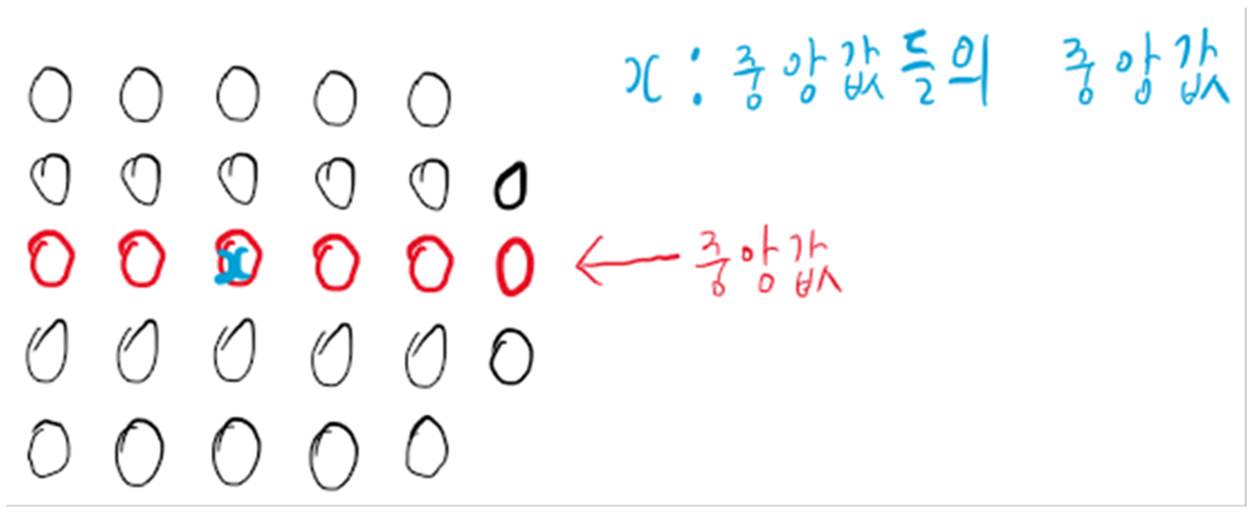 x : 중앙값들의 중앙값
x
← 중앙값